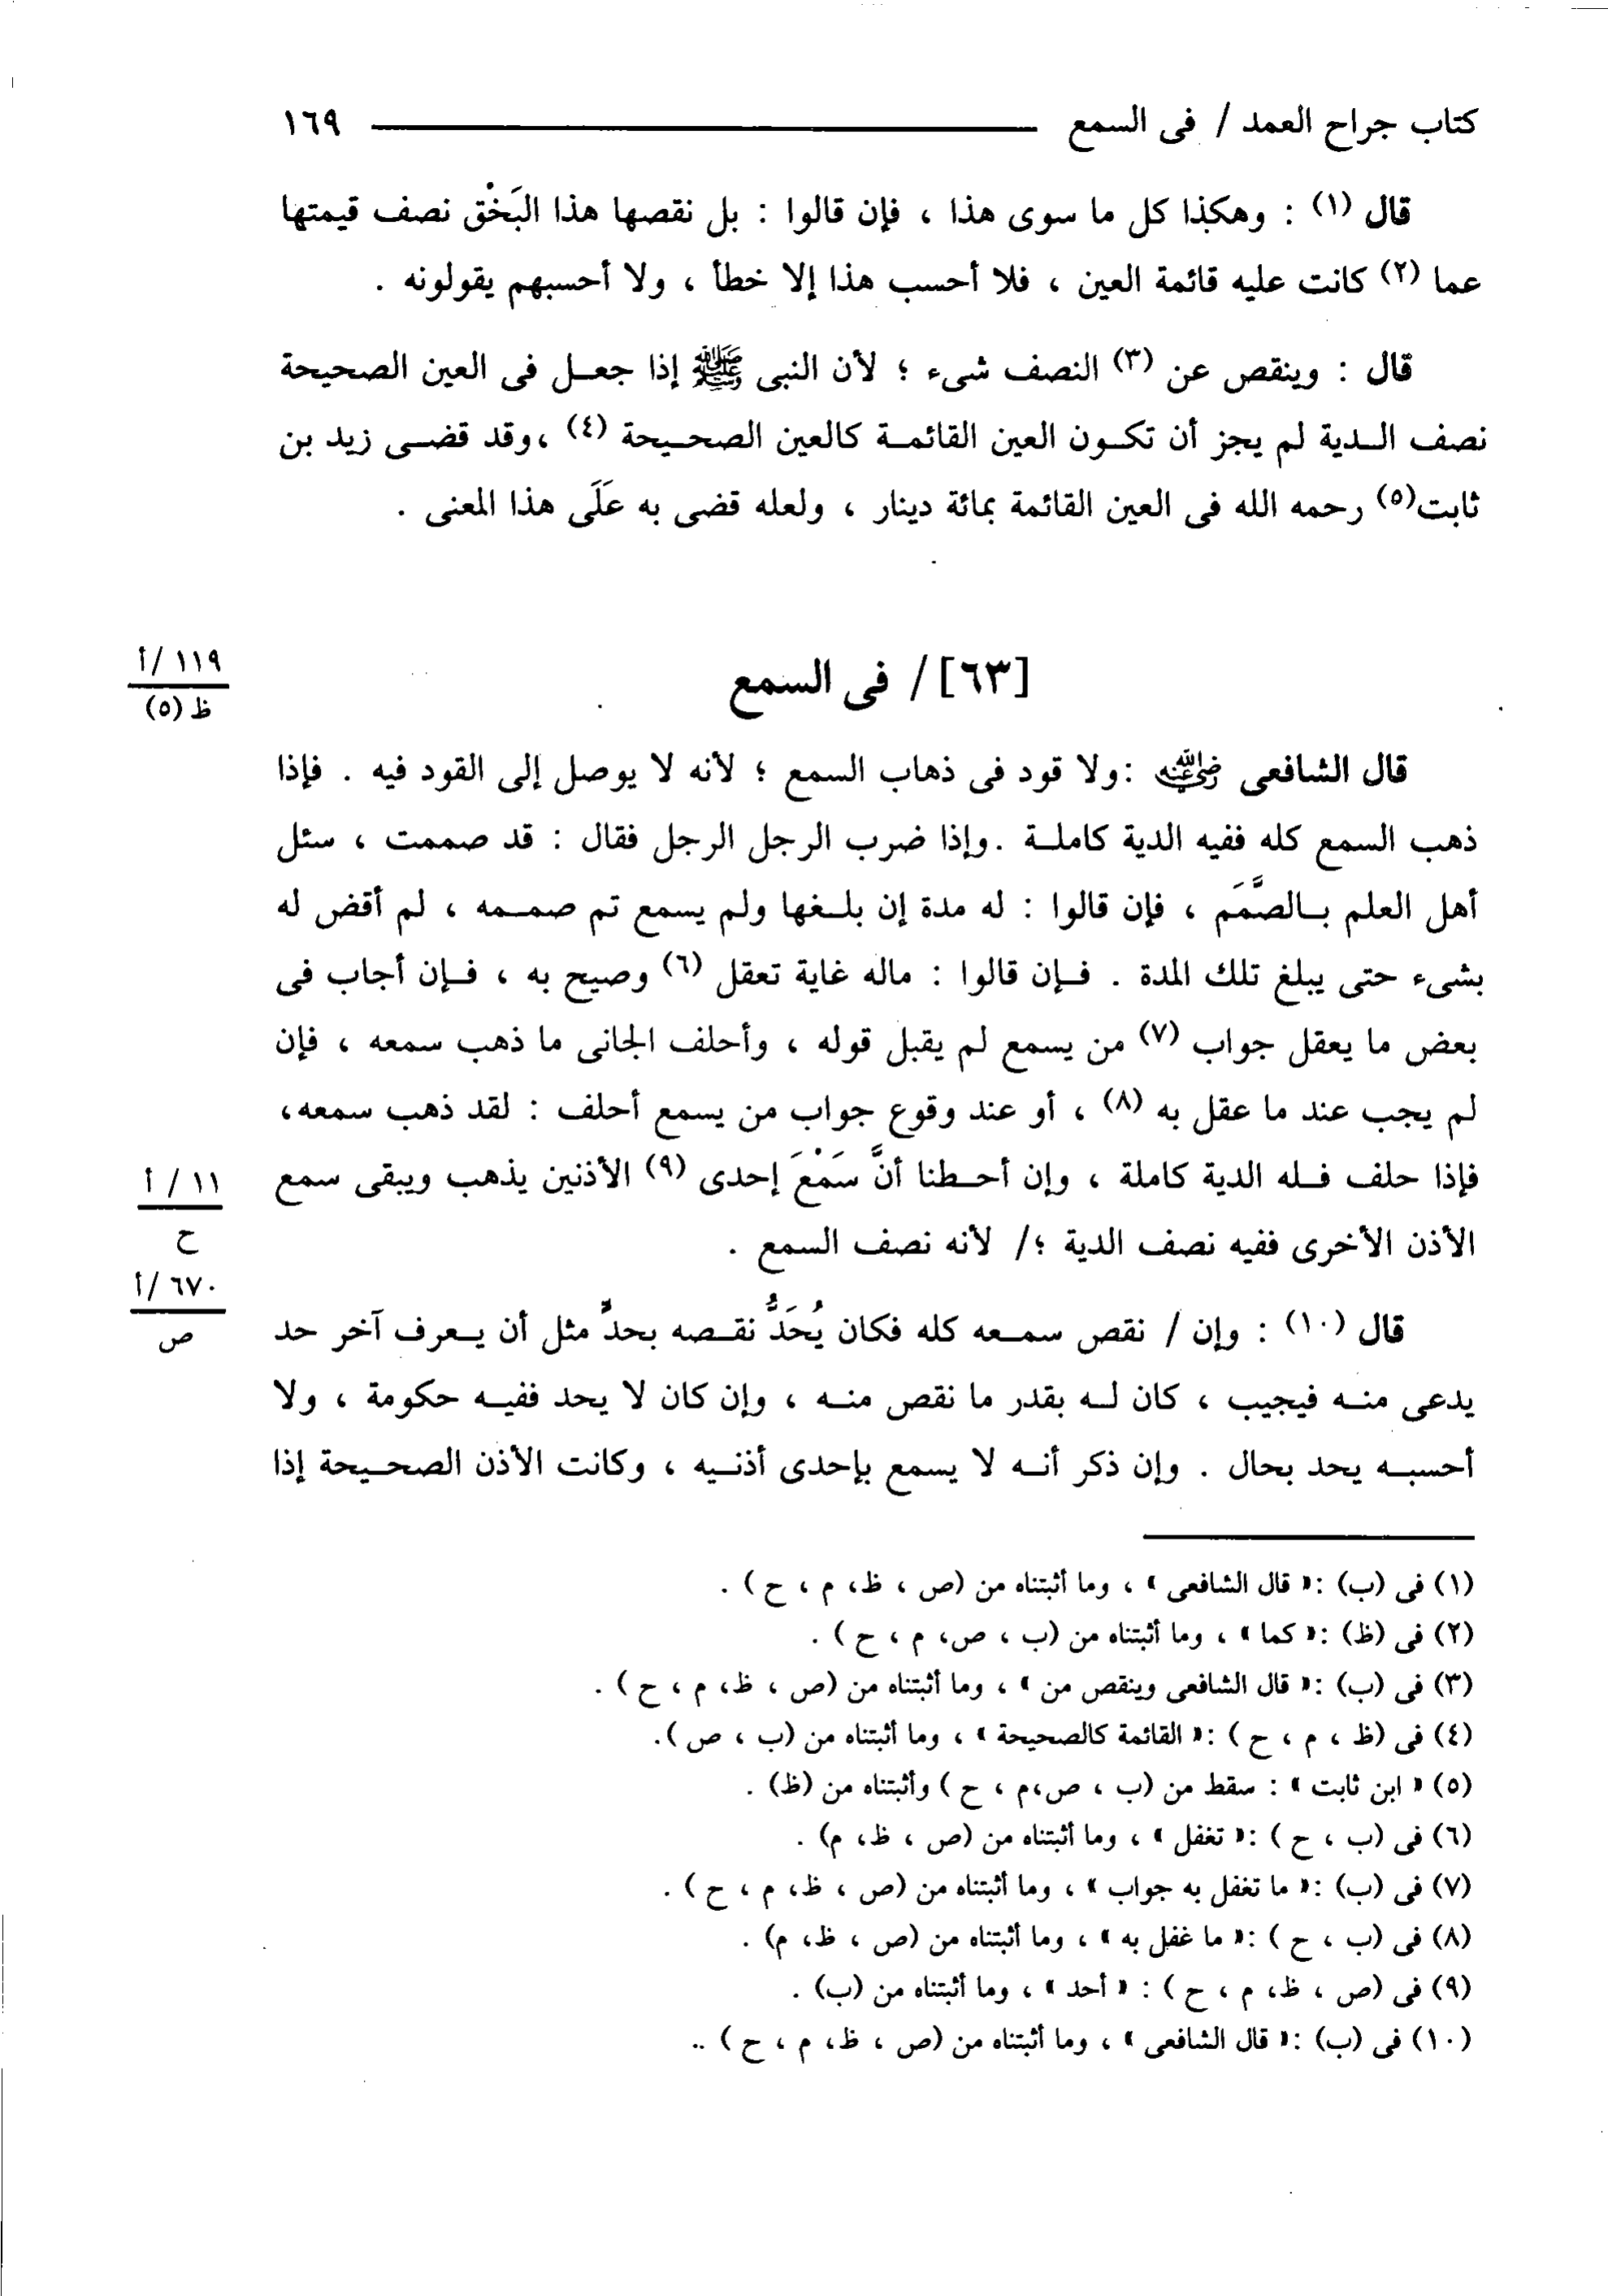 كتاب جراح العمد / فى السمع ١٦٩
قال (١) : وهكذا كل ما سوى هذا ، فإن قالوا : بل نقصها هذا البَخْق نصف قيمتها
عما (٢) كانت عليه قائمة العين ، فلا أحسب هذا إلا خطأ ، ولا أحسبهم يقولونه .
قال : وينقص عن (٣) النصف شىء ؛ لأن النبى ﷺ إذا جعل فى العين الصحيحة
نصف الدية لم يجز أن تكون العين القائمة كالعين الصحيحة (٤) ،وقد قضى زيد بن
ثابت(٥) رحمه الله فى العين القائمة بمائة دينار ، ولعله قضى به عَلَى هذا المعنى .
١١٩/أ
ظ (٥)
[٦٣] / فى السمع
قال الشافعى رضي الله عنه :ولا قود فى ذهاب السمع ؛ لأنه لا يوصل إلى القود فيه . فإذا
ذهب السمع كله ففيه الدية كاملة .وإذا ضرب الرجل الرجل فقال : قد صممت ، سئل
أهل العلم بالصَّمَم ، فإن قالوا : له مدة إن بلغها ولم يسمع تم صممه ، لم أقض له
بشىء حتى يبلغ تلك المدة . فإن قالوا : ماله غاية تعقل (٦) وصيح به ، فإن أجاب فى
بعض ما يعقل جواب (٧) من يسمع لم يقبل قوله ، وأحلف الجانى ما ذهب سمعه ، فإن
لم يجب عند ما عقل به (٨) ، أو عند وقوع جواب من يسمع أحلف : لقد ذهب سمعه،
فإذا حلف فله الدية كاملة ، وإن أحطنا أنَّ سَمْعَ إحدى (٩) الأذنين يذهب ويبقى سمع
١١ / أ
ح
الأذن الأخرى ففيه نصف الدية ؛/ لأنه نصف السمع .
٦٧٠/أ
ص
قال (١٠) : وإن / نقص سمعه كله فكان يُحَدُّ نقصه بحدٍّ مثل أن يعرف آخر حد
يدعى منه فيجيب ، كان له بقدر ما نقص منه ، وإن كان لا يحد ففيه حكومة ، ولا
أحسبه يحد بحال . وإن ذكر أنه لا يسمع بإحدى أذنيه ، وكانت الأذن الصحيحة إذا
(١) فى (ب) :« قال الشافعى » ، وما أثبتناه من (ص ، ظ، م ، ح ) .
(٢) فى (ظ) :« كما » ، وما أثبتناه من (ب ، ص، م ، ح ) .
(٣) فى (ب) :« قال الشافعى وينقص من » ، وما أثبتناه من (ص ، ظ، م ، ح ) .
(٤) فى (ظ ، م ، ح ) :« القائمة كالصحيحة » ، وما أثبتناه من (ب ، ص ).
(٥) « ابن ثابت » : سقط من (ب ، ص،م ، ح ) وأثبتناه من (ظ) .
(٦) فى (ب ، ح ) :« تغفل » ، وما أثبتناه من (ص ، ظ، م) .
(٧) فى (ب) :« ما تغفل به جواب » ، وما أثبتناه من (ص ، ظ، م ، ح ) .
(٨) فى (ب ، ح ) :« ما غفل به » ، وما أثبتناه من (ص ، ظ، م) .
(٩) فى (ص ، ظ، م ، ح ) : « أحد » ، وما أثبتناه من (ب) .
(١٠) فى (ب) :« قال الشافعى » ، وما أثبتناه من (ص ، ظ، م ، ح ) ..